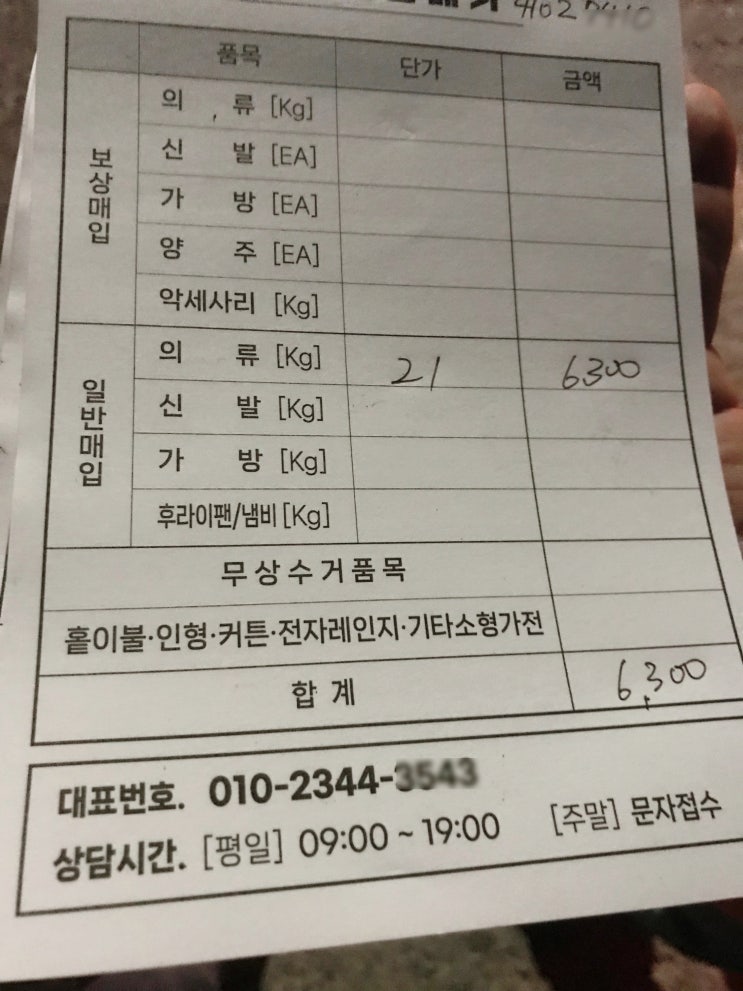 4102
품목 단가 금액
보상매입
의 류 [Kg]
신 발 [EA]
가 방 [EA]
양 주 [EA]
악세사리 [Kg]
일반매입
의 류 [Kg] 21 6300
신 발 [Kg]
가 방 [Kg]
후라이팬/냄비 [Kg]
무상수거품목
홑이불·인형·커튼·전자레인지·기타소형가전
합 계 6,300
대표번호. 010-2344-3543
상담시간. [평일] 09:00 ~ 19:00 [주말] 문자접수